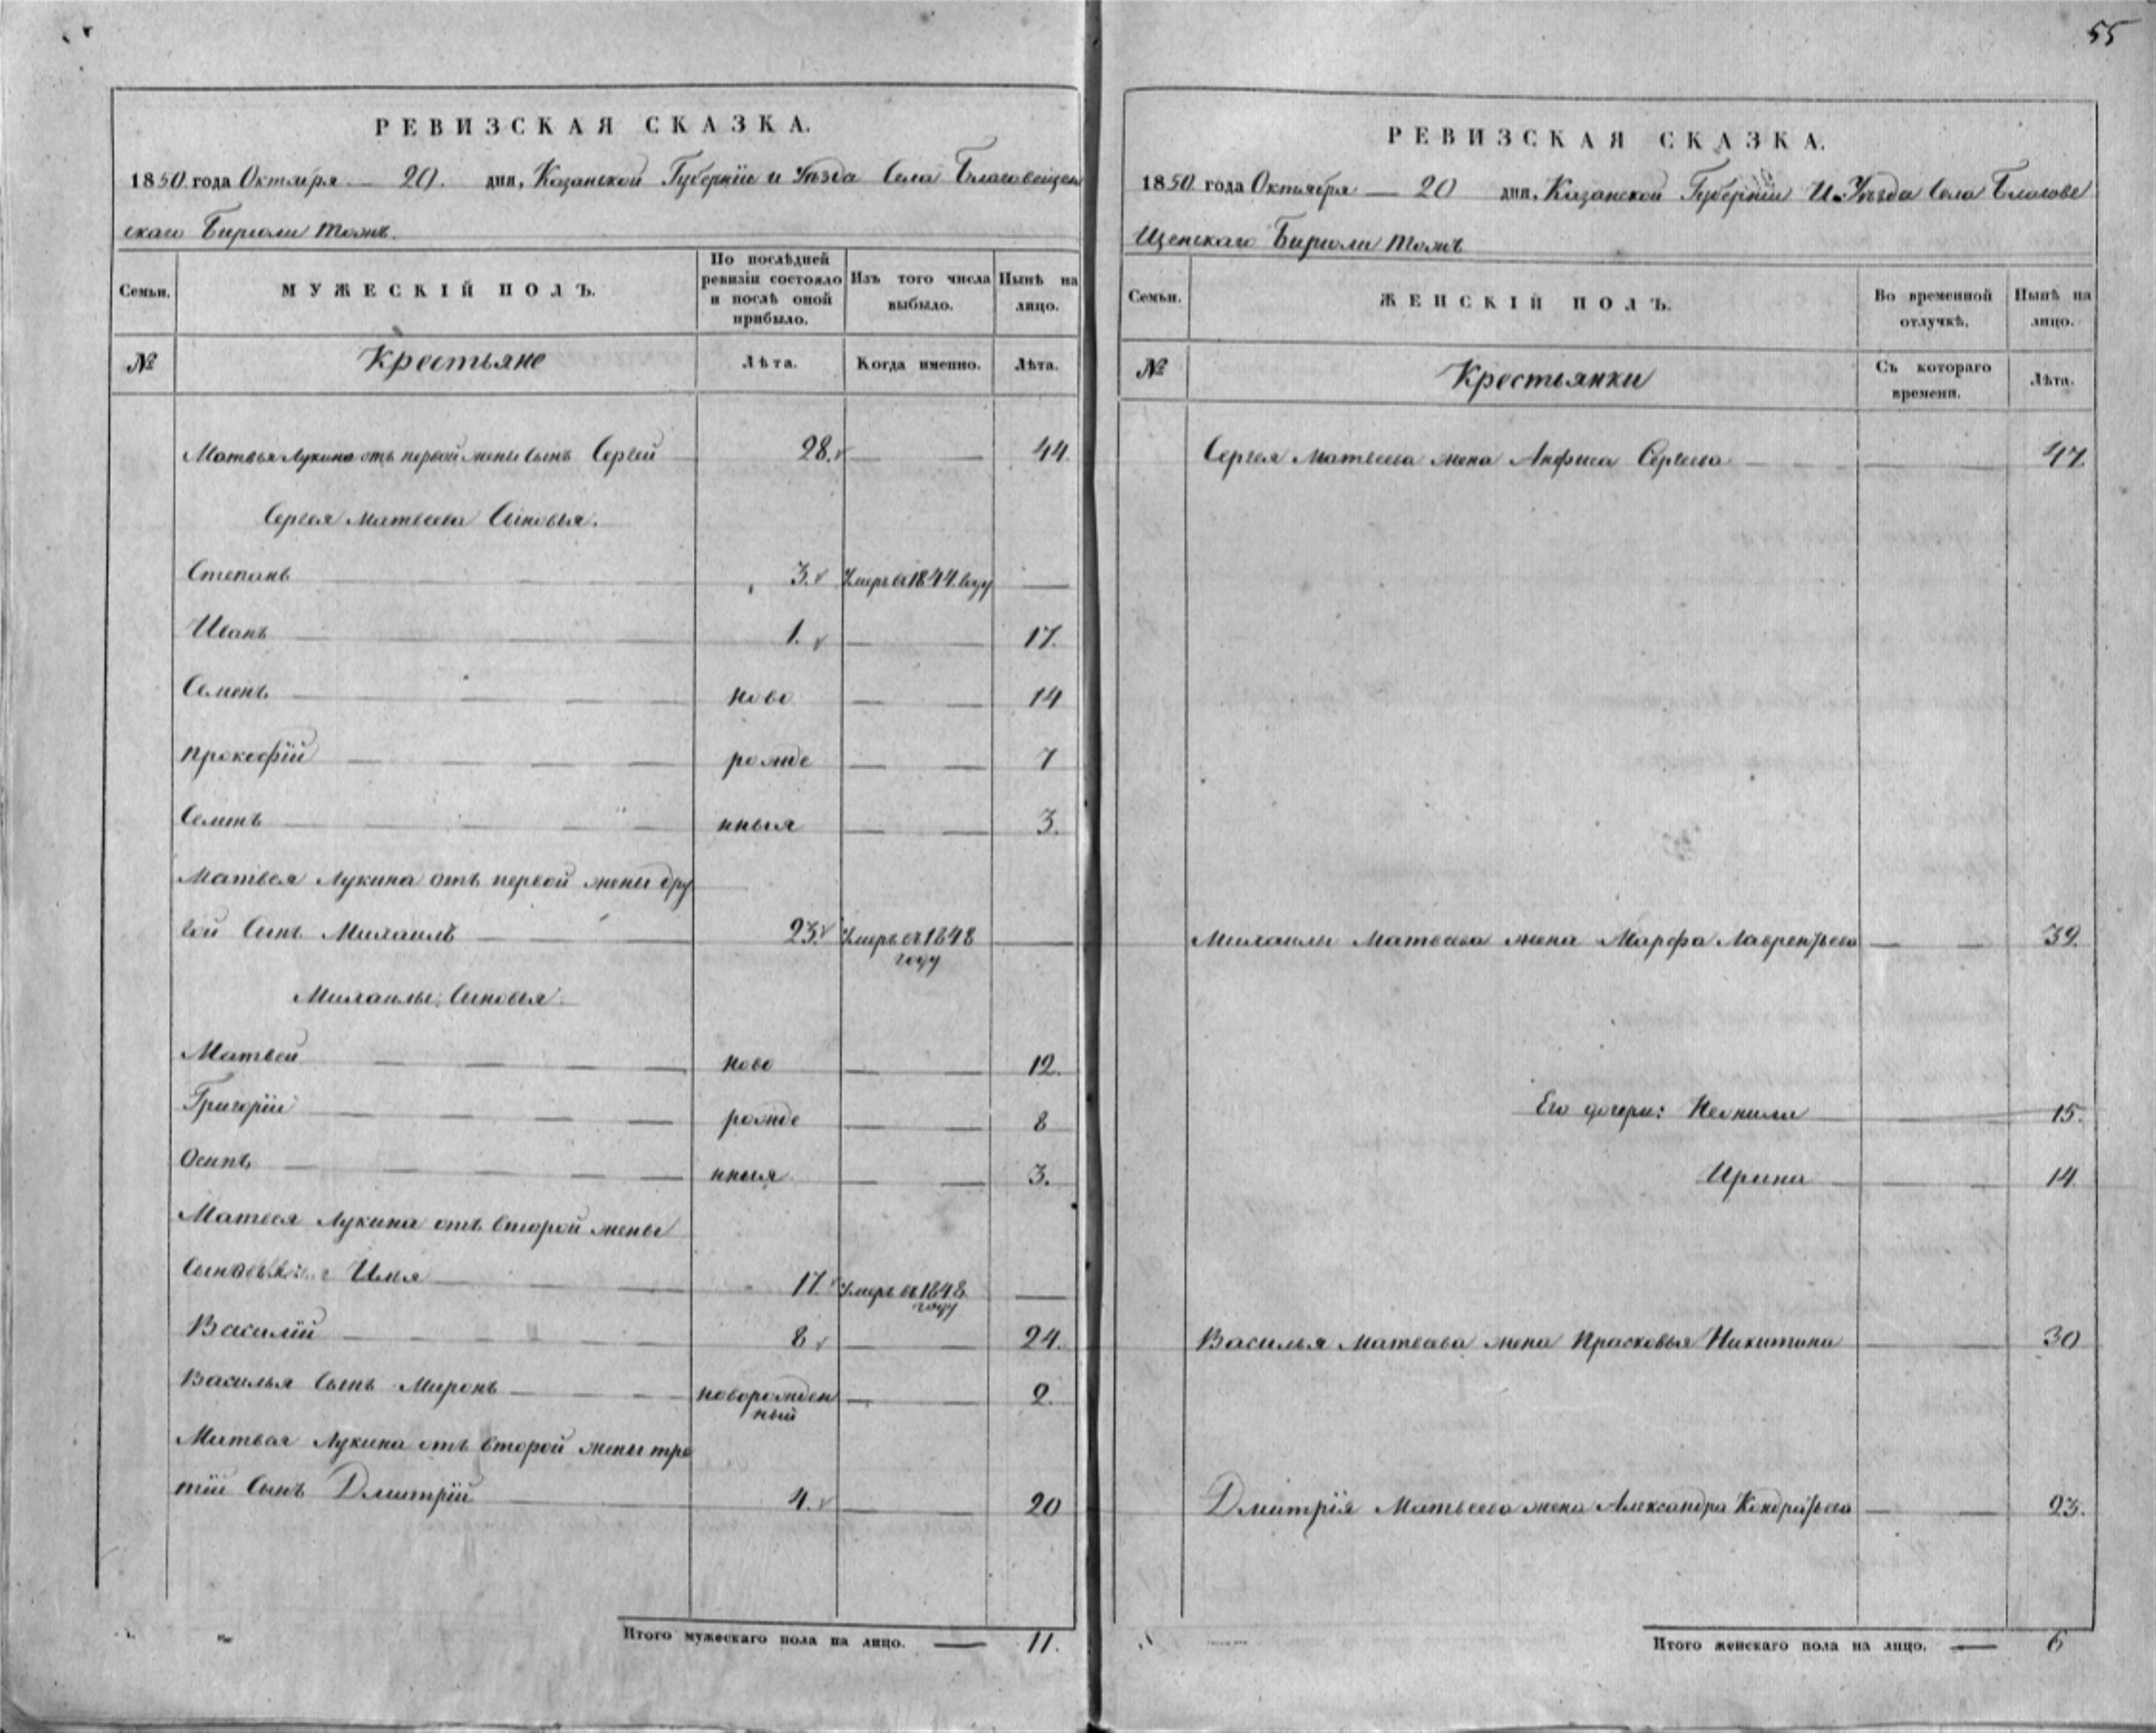 55
РЕВИЗСКАЯ СКАЗКА.
1850 года Октября 20. дня, Казанской Губерніи и Уѣзда Села Благовещен
скаго Бирюли тожъ.
Семьи.
МУЖЕСКІЙ ПОЛЪ.
По послѣдней ревизіи состояло и послѣ оной прибыло.
Изъ того числа выбыло.
Нынѣ на лицо.
№
Крестьяне
Лѣта.
Когда именно.
Лѣта.
Матвея Лукина отъ первой жены сынъ Сергей 28. 44.
Сергея Матвеева Сыновья.
Степанъ 3. Умеръ въ 1844 году
Иванъ 1. 17.
Семенъ ново 14
Прокофій рожде 7
Семенъ нныя 3.
Матвея Лукина отъ первой жены дру
гой Сынъ Михаилъ 23. Умеръ въ 1848
году
Михаилы Сыновья
Матвей ново 12.
Григорій рожде 8
Осипъ нныя 3.
Матвея Лукина отъ второй жены
Илья 17. Умеръ въ 1848
году
Василій 8 24.
Василья Сынъ Миронъ новорожден 2.
ный
Матвея Лукина отъ второй жены тре
тій Сынъ Дмитрій 4. 20
Итого мужескаго пола на лицо. 11.
РЕВИЗСКАЯ СКАЗКА.
1850 года Октября 20 дня, Казанской Губерніи И Уѣзда Села Благове
щенскаго Бирюли тожъ
Семьи.
ЖЕНСКІЙ ПОЛЪ.
Во временной отлучкѣ.
Нынѣ на лицо.
№
Крестьянки
Съ котораго времени.
Лѣта.
Сергея Матвеева жена Анфиса Сергеева 47
Михаилы Матвеева жена Марфа Лаврентьева 39.
Его дочери: Неонила 15.
Ирина 14
Василья Матвеева жена Прасковья Никитина 30
Дмитрія Матвеева жена Александра Кондратьева 23.
Итого женскаго пола на лицо. 6